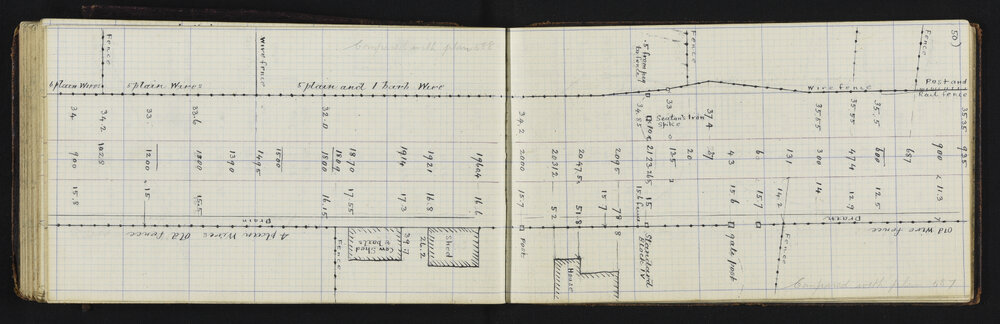 50)
Compared with plan 538
Fence
Wire fence
6 plain Wires
5 plain Wires
5 plain and 1 barb Wire
.5 from peg
Fence
Fence
Wire fence
Post and
Rail fence
34
34.2
33
33.6
32.0
34.2
34.85
33
Seaton's Iron
Spike
37.4
35.85
35.
35.5
35.35
900
1028
1200
1300
1390
1495
1500
1800
1809
1870
1914
1921
19604
2000
20312
2047.5
2095
2123265
135
20
27
43
6
131
300
474
600
687
900
925
15.8
.15
15.5
16.15
17.55
17.3
16.8
16.6
15.7
5.2
51.8
15.7
78.8
15
15.6
15.7
14.2
14
12.9
12.5
11.3
Drain
Drain
4 plain Wires Old Fence
Fence
Cow Shed
& bails
39.7
24.2
Shed
Post
House
Standard
Block IV
gate post
Fence
Old Wire fence
Compared with plan 537